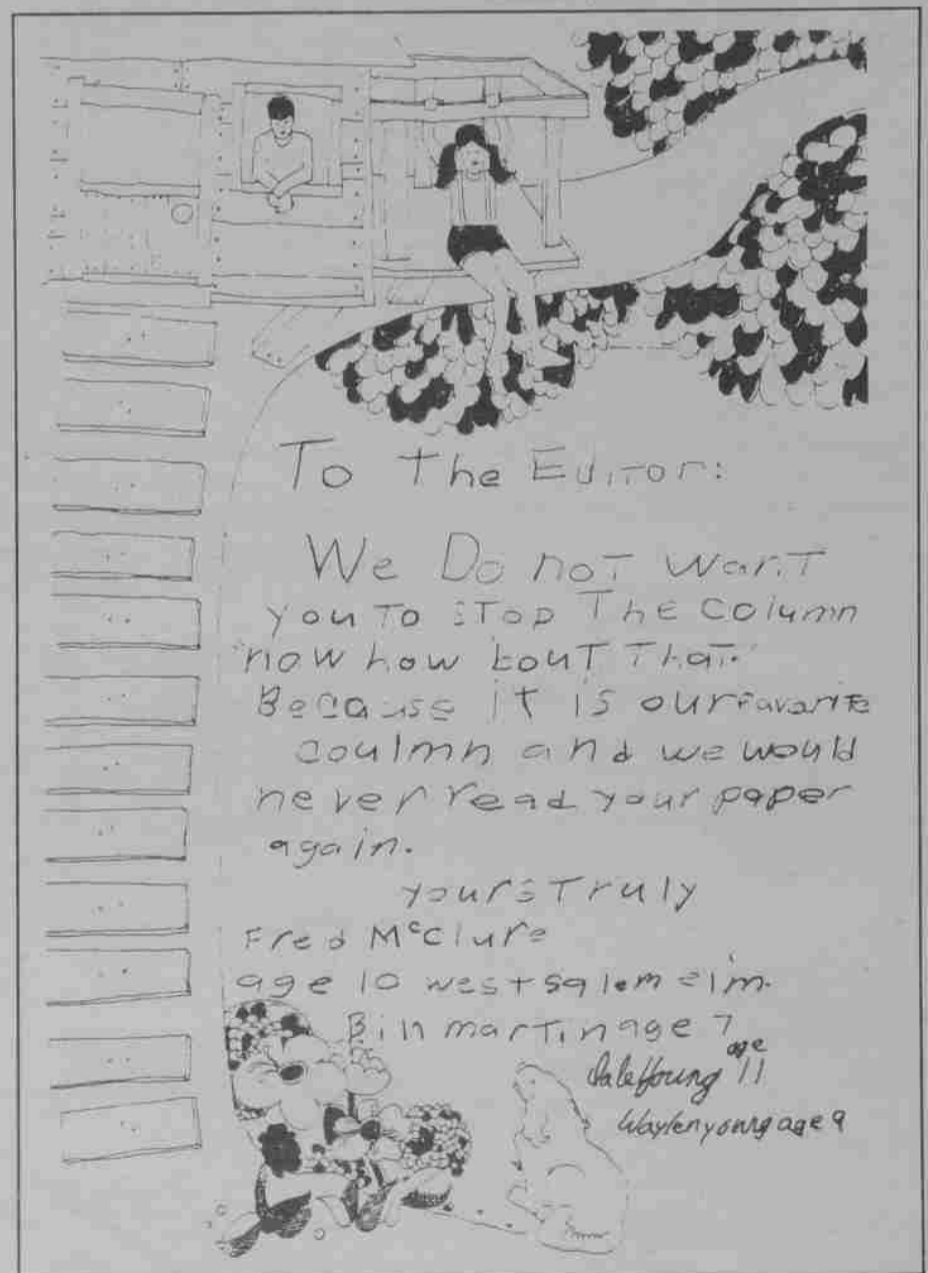 To The Editor:
We Do noT want
you To sTop The column
"now how bouT ThaT."
Because iT is our favoriTe
coulmn and we would
never read your paper
again.
yours Truly
Fred McClure
age 10 west salem elm.
Bill marTin age 7
Dale Young age 11
Waylen young age 9